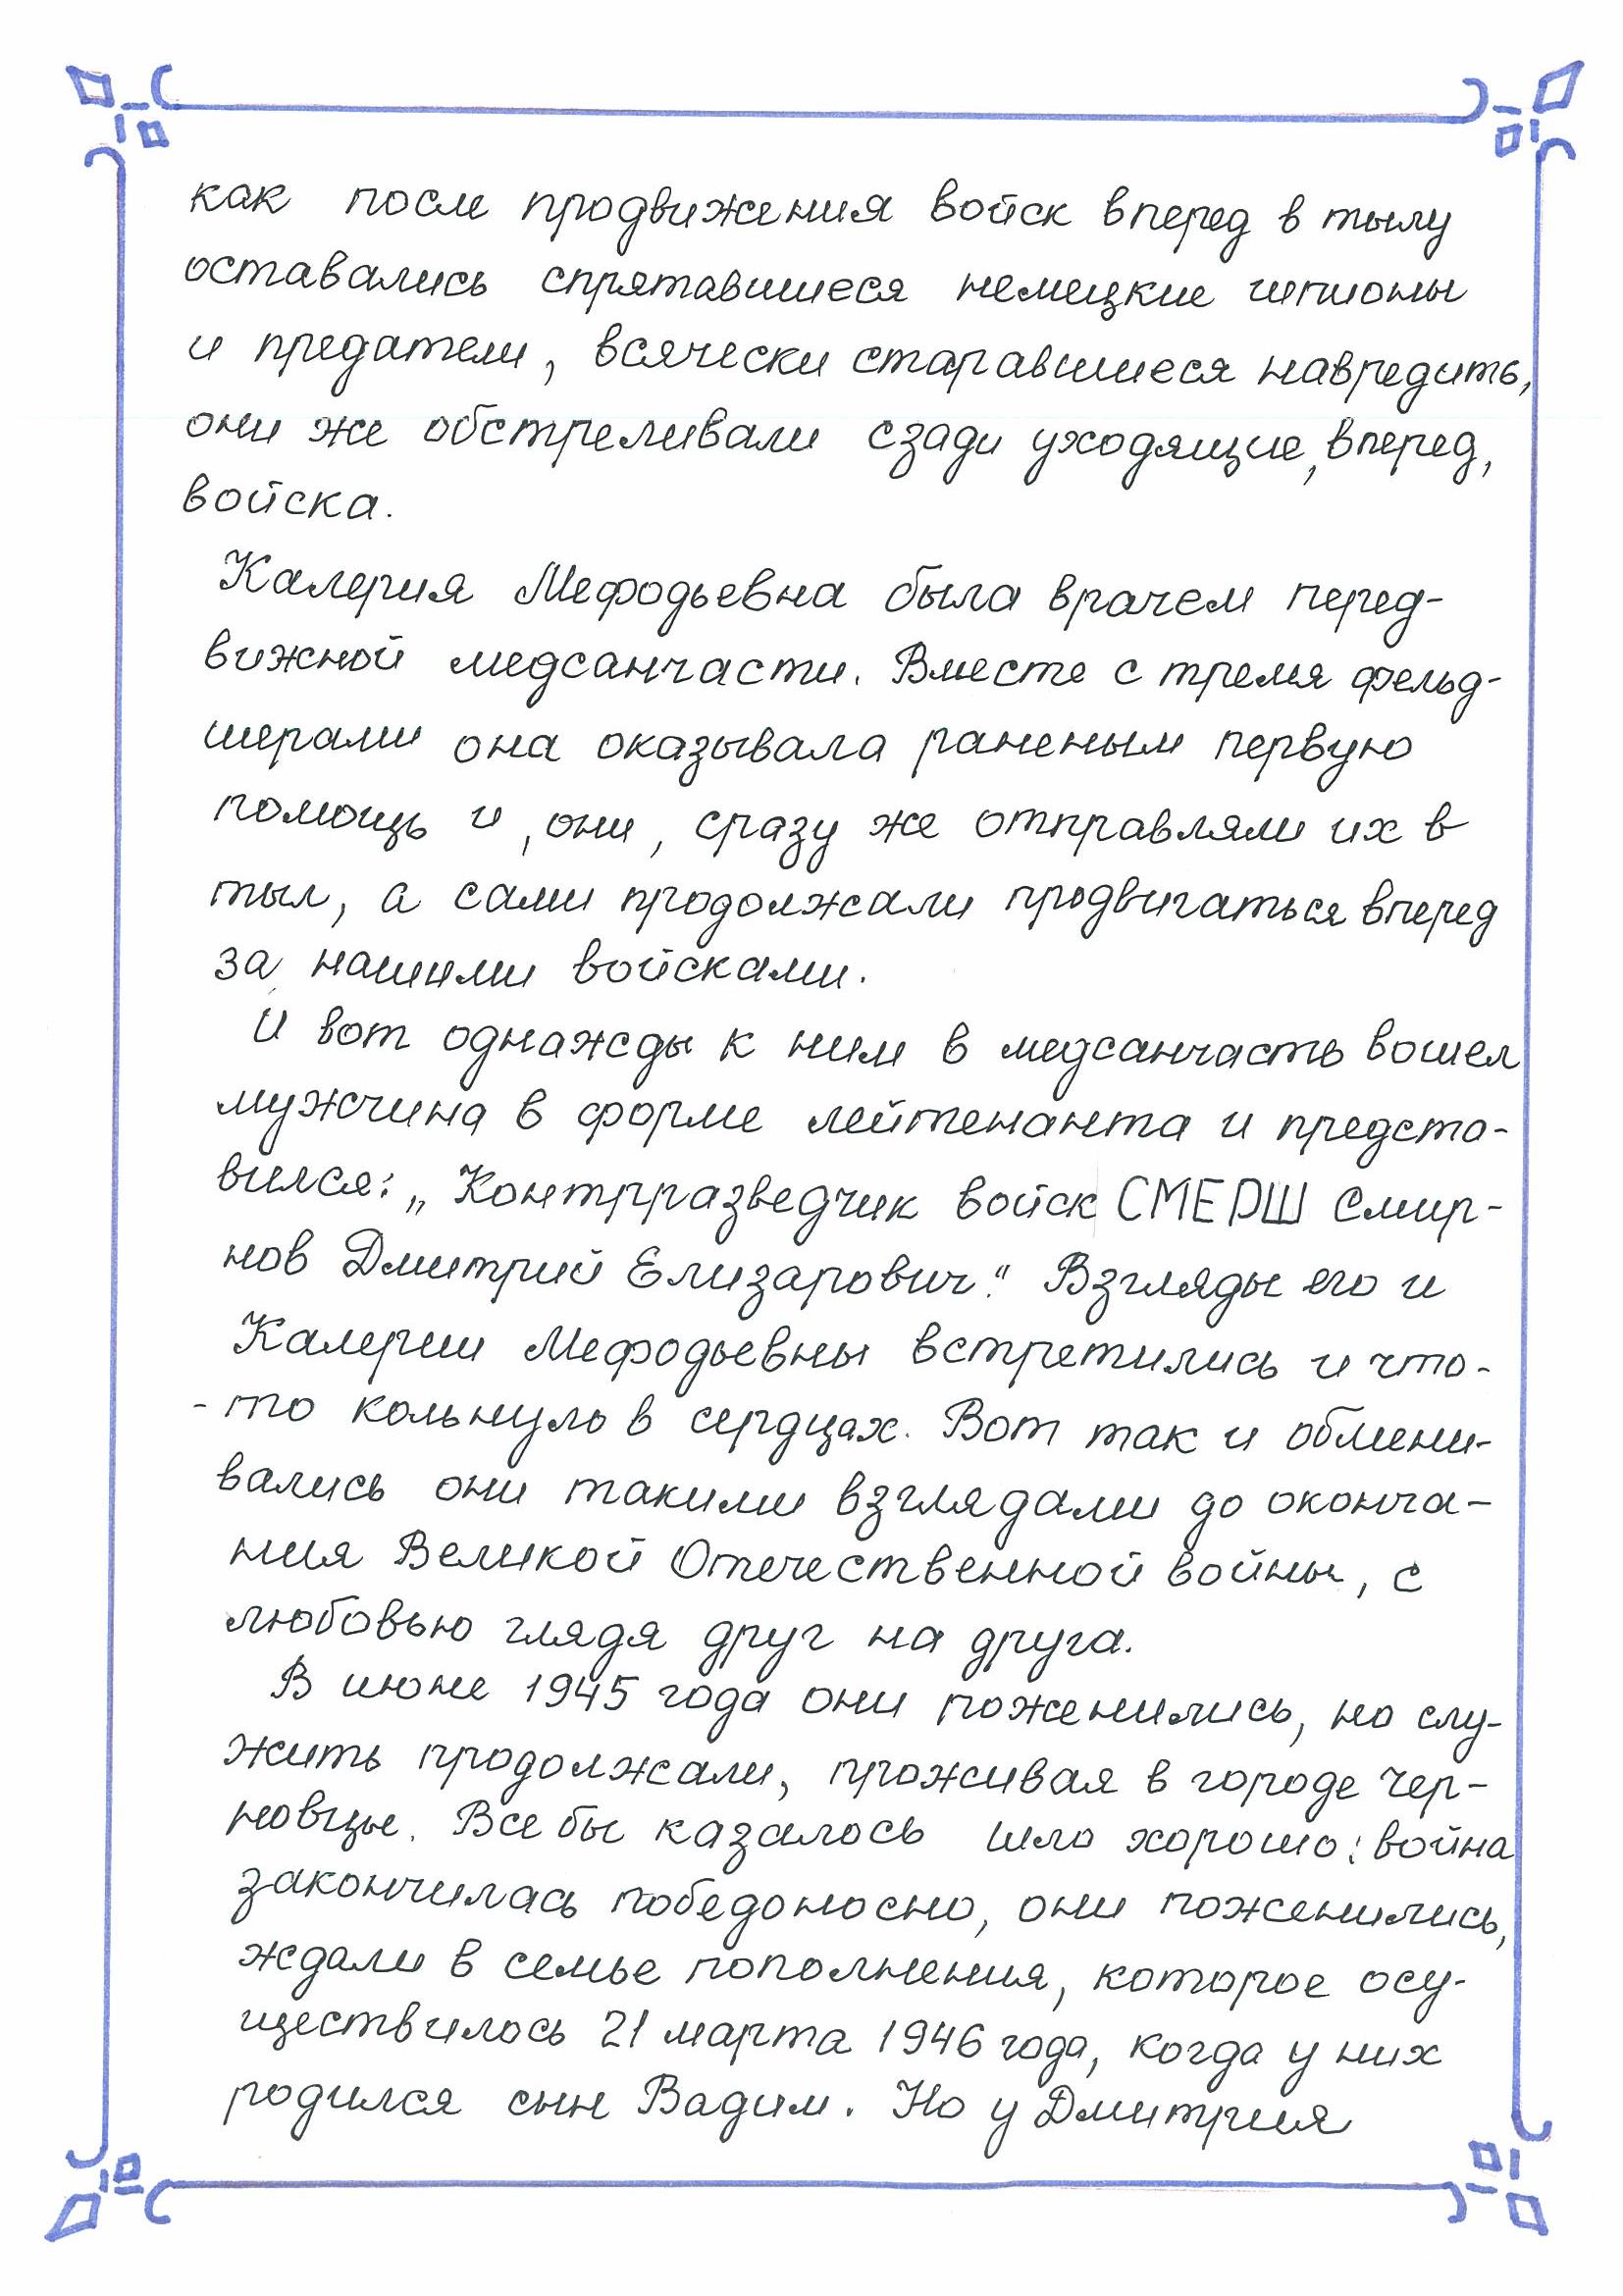 как после продвижения войск вперед в тылу
оставались спрятавшиеся немецкие шпионы
и предатели, всячески старавшиеся навредить,
они же обстреливали сзади уходящие, вперед,
войска.
Калерия Мефодьевна была врачем перед-
вижной медсанчасти. Вместе с тремя фельд-
шерами она оказывала раненым первую
помощь и, они, сразу же отправляли их в
тыл, а сами продолжали продвигаться вперед
за нашими войсками.
И вот однажды к ним в медсанчасть вошел
мужчина в форме лейтенанта и предста-
вился: „Контрразведчик войск СМЕРШ Смир-
нов Дмитрий Елизарович." Взгляды его и
Калерии Мефодьевны встретились и что-
-то кольнуло в сердцах. Вот так и обмени-
вались они такими взглядами до оконча-
ния Великой Отечественной войны, с
любовью глядя друг на друга.
В июне 1945 года они поженились, но слу-
жить продолжали, проживая в городе Чер-
новцы. Все бы казалось шло хорошо: война
закончилась победоносно, они поженились,
ждали в семье пополнения, которое осу-
ществилось 21 марта 1946 года, когда у них
родился сын Вадим. Но у Дмитрия